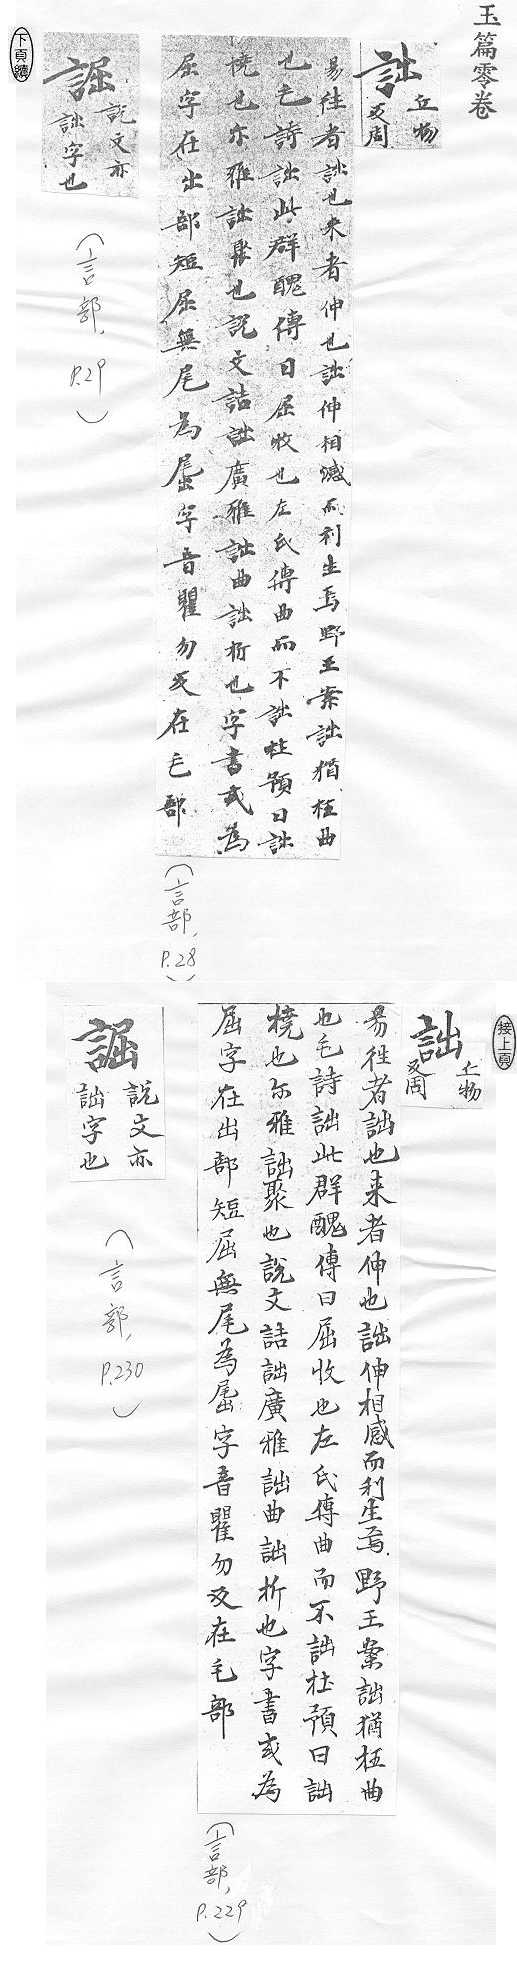 玉篇零卷
詘
丘物
反周
易往者詘也来者伸也詘伸相感而利生焉野王案詘猶枉曲
也毛詩詘此群醜傳曰屈收也左氏傳曲而不詘杜預曰詘
橈也尓雅詘聚也說文詰詘廣雅詘曲詘折也字書或為
屈字在出部短屈無尾為𡲬字音瞿勿反在毛部
(言部, P.28)
誳
說文亦
詘字也
(言部, P.29)
下頁續
接上頁
詘
丘物
反周
易往者詘也来者伸也詘伸相感而利生焉野王案詘猶枉曲
也毛詩詘此群醜傳曰屈收也左氏傳曲而不詘杜預曰詘
橈也尓雅詘聚也說文詰詘廣雅詘曲詘折也字書或為
屈字在出部短屈無尾為𡲬字音瞿勿反在毛部
(言部, P.229)
誳
說文亦
詘字也
(言部, P.230)